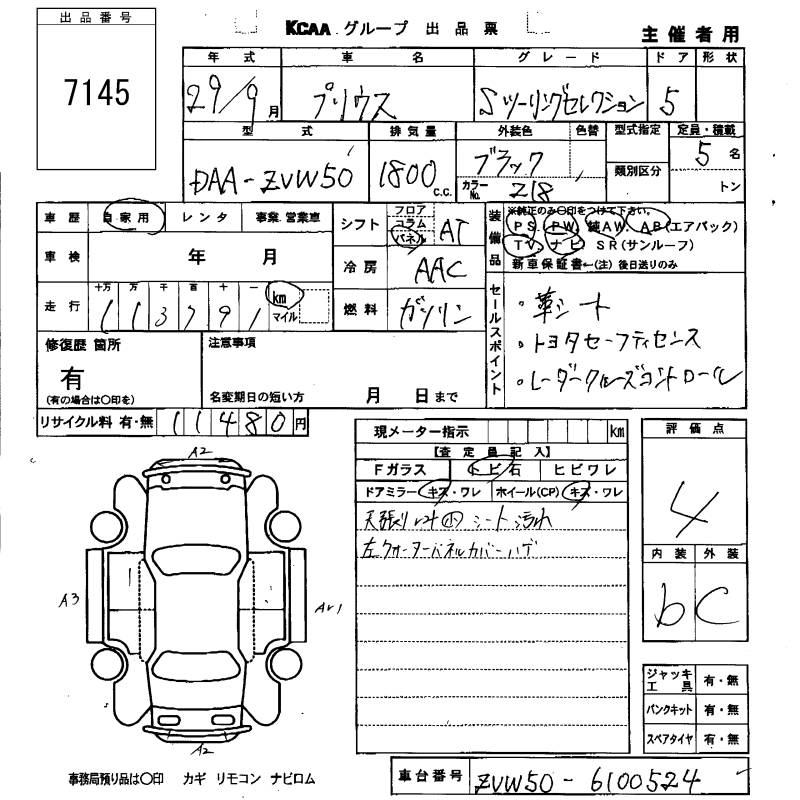 出品番号
7145
KCAA グループ 出品票
主催者用
年式 車名 グレード ドア 形状
29/9月 プリウス Sツーリングセレクション 5
型式 排気量 外装色 色替 型式指定 定員・積載
DAA-ZVW50 1800 c.c. ブラック 類別区分 5名
カラーNo. 218 トン
車歴 自家用 レンタ 事業.営業車
シフト フロア コラム パネル AT
装備品 ※純正のみ〇印をつけて下さい。
PS. PW. 純AW. AB(エアバック)
TV. ナビ SR(サンルーフ)
新車保証書←(注) 後日送りのみ
車検 年 月
冷房 AAC
走行 十万 万 千 百 十 一 km マイル
113791
燃料 ガソリン
セールスポイント
・革シート
・トヨタセーフティセンス
・レーダークルーズコントロール
修復歴 箇所
有
(有の場合は〇印を)
注意事項
名変期日の短い方 月 日まで
リサイクル料 有・無 11480円
現メーター指示 km
【査定員記入】
Fガラス トビ石 ヒビワレ
ドアミラー キズ・ワレ ホイール(CP) キズ・ワレ
シート汚れ
左クォーターパネルカバーハゲ
評価点
4
内装 外装
b C
A2
A3
A2
ジャッキ工具 有・無
パンクキット 有・無
スペアタイヤ 有・無
事務局預り品は〇印 カギ リモコン ナビロム
車台番号 ZVW50-6100524